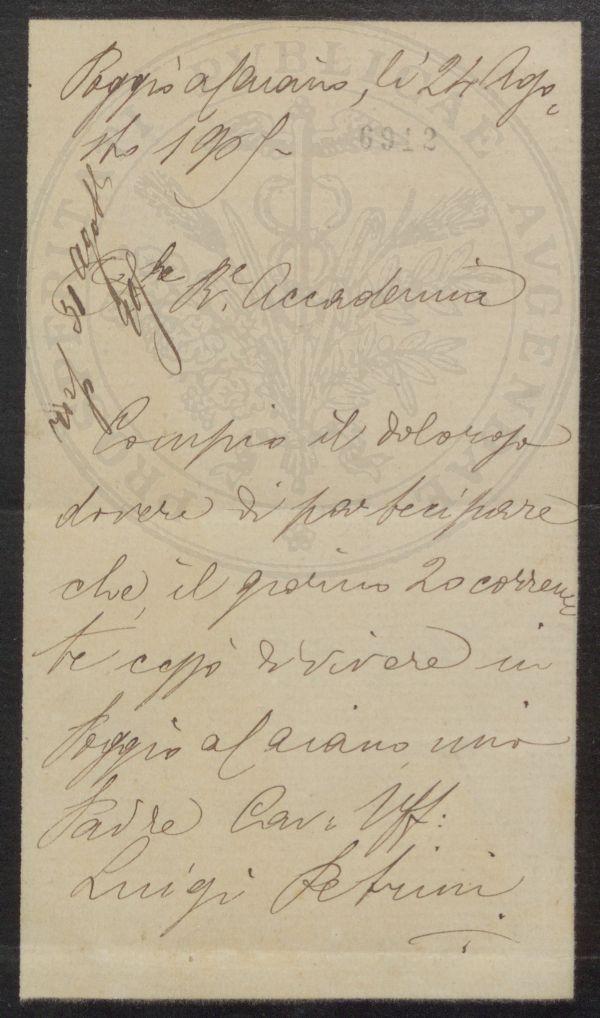 Poggio a Caiano, li 24 Ago-
sto 1905-
6912
R. Accademia
Compio il doloroso
dovere di partecipare
che, il giorno 20 corren-
te cessò di vivere in
Poggio a Caiano mio
Padre Cav: Uff:
Luigi Petrini
PROSPERITATI PUBLICAE AUGENDAE